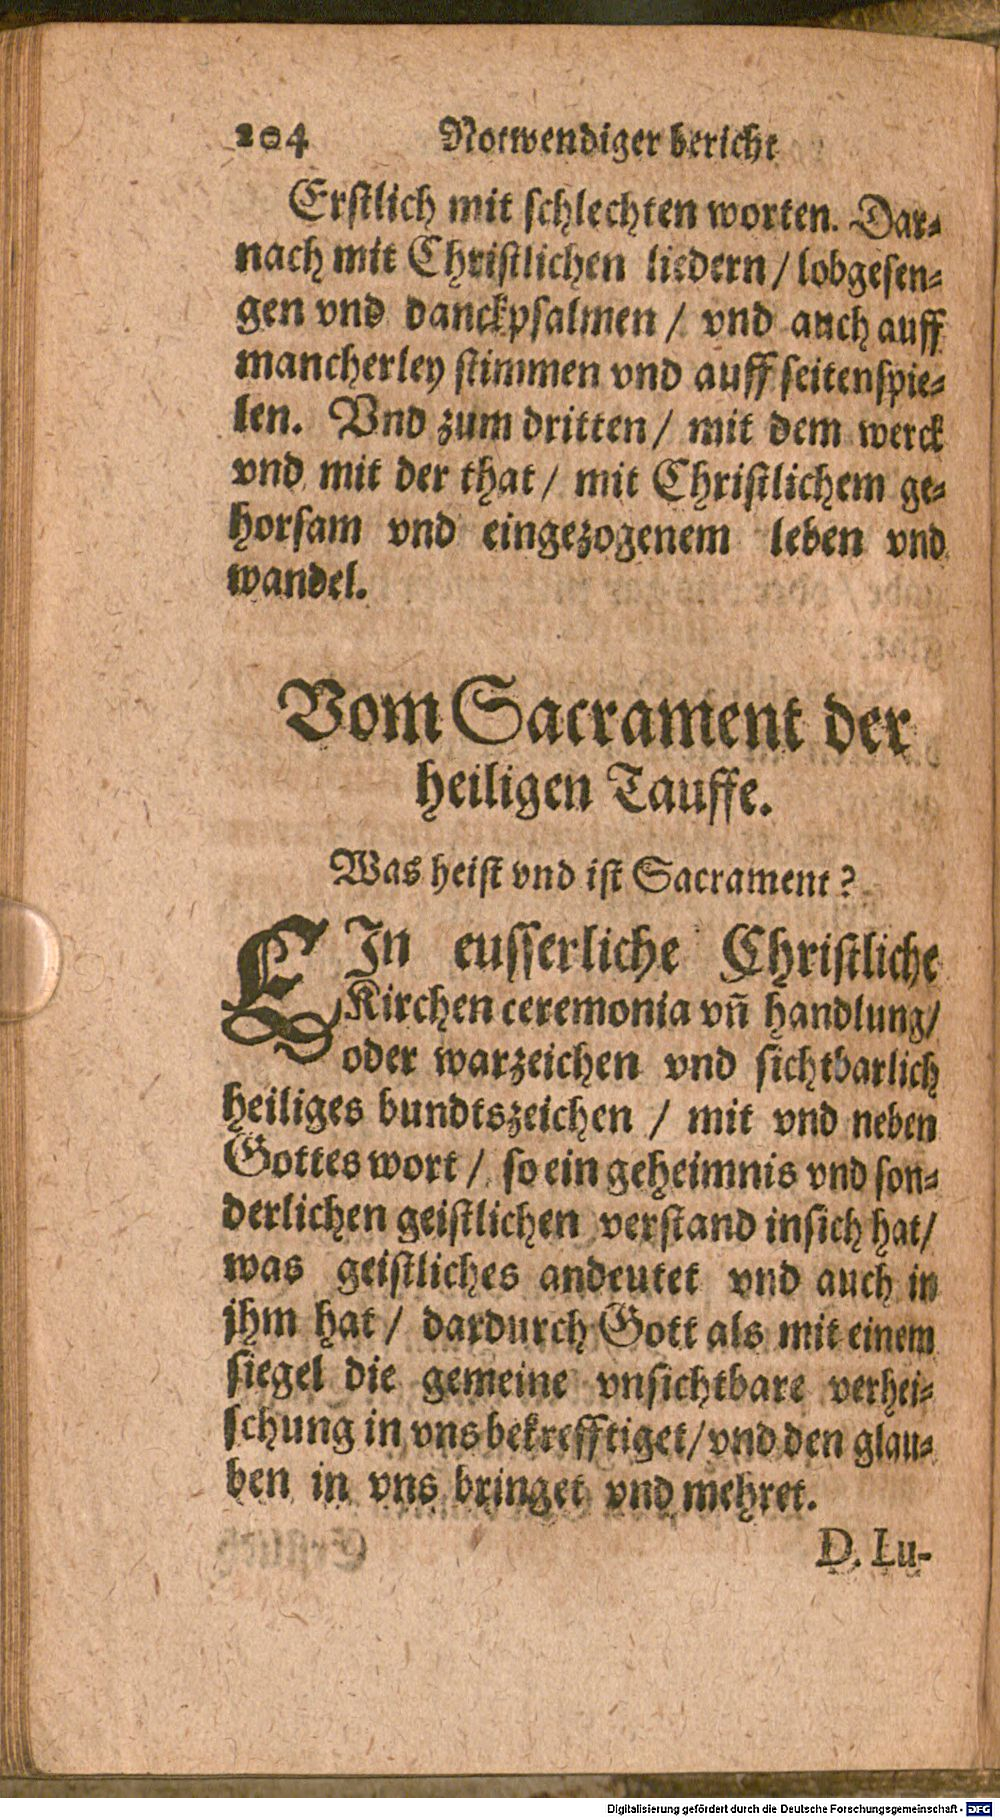 204 Notwendiger bericht
Erstlich mit schlechten worten. Dar-
nach mit Christlichen liedern / lobgesen-
gen vnd danckpsalmen / vnd auch auff
mancherley stimmen vnd auff seitenspie-
len. Vnd zum dritten / mit dem werck
vnd mit der that / mit Christlichem ge-
horsam vnd eingezogenem leben vnd
wandel.
Vom Sacrament der
heiligen Tauffe.
Was heist vnd ist Sacrament?
EIn eusserliche Christliche
Kirchen ceremonia vn̄ handlung/
oder warzeichen vnd sichtbarlich
heiliges bundtszeichen / mit vnd neben
Gottes wort / so ein geheimnis vnd son-
derlichen geistlichen verstand in sich hat/
was geistliches andeutet vnd auch in
jhm hat / dardurch Gott als mit einem
siegel die gemeine vnsichtbare verhei-
schung in vns bekrefftiget/ vnd den glau-
ben in vns bringet vnd mehret.
D. Lu-
Digitalisierung gefördert durch die Deutsche Forschungsgemeinschaft - DFG